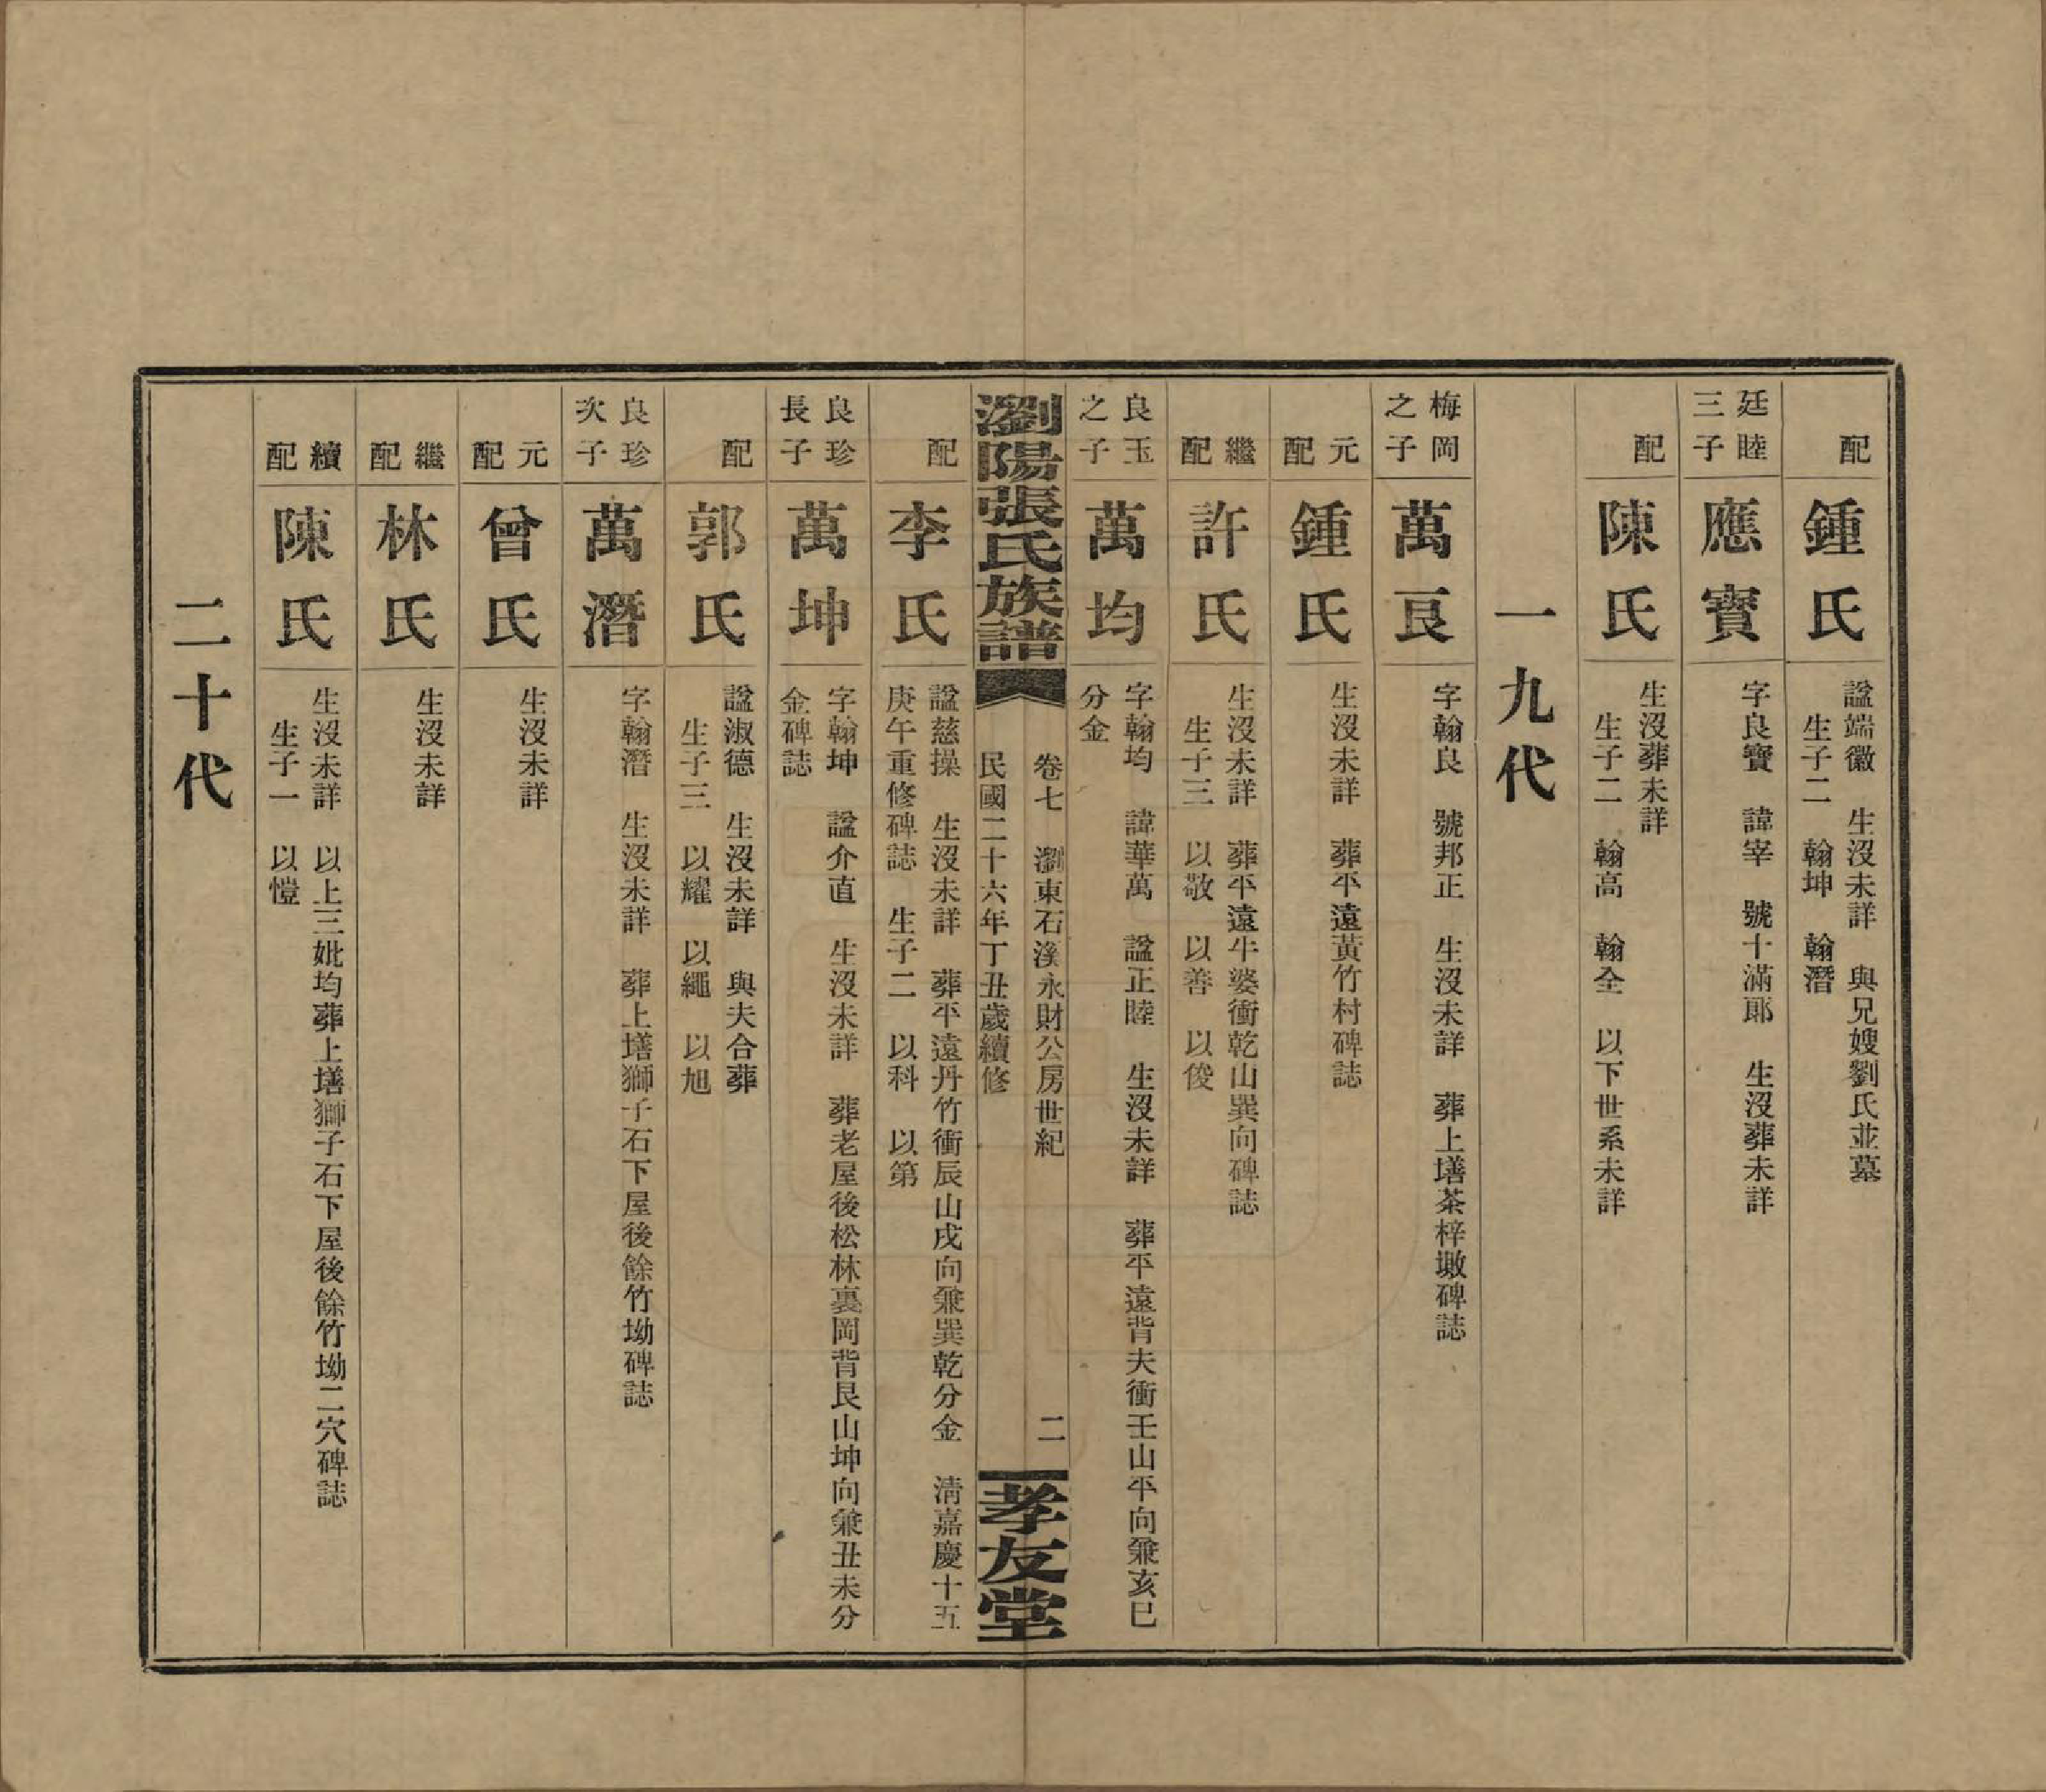 配
鍾氏
諡端徽　生沒未詳　與兄嫂劉氏並墓
生子二　翰坤　翰潛
廷睦
三子
應寶
字良寶　諱宰　號十滿郎　生沒葬未詳
配
陳氏
生沒葬未詳
生子二　翰高　翰全　以下世系未詳
一九代
梅岡
之子
萬良
字翰良　號邦正　生沒未詳　葬上墡茶梓墩碑誌
元
配
鍾氏
生沒未詳　葬平遠黃竹村碑誌
繼
配
許氏
生沒未詳　葬平遠牛婆衝乾山巽向碑誌
生子三　以敬　以善　以俊
良玉
之子
萬均
字翰均　諱華萬　諡正睦　生沒未詳　葬平遠背夫衝壬山平向兼亥巳
分金
瀏陽張氏族譜
卷七　瀏東石溪永財公房世紀　二
民國二十六年丁丑歲續修
孝友堂
配
李氏
諡慈操　生沒未詳　葬平遠丹竹衝辰山戌向兼巽乾分金　淸嘉慶十五
庚午重修碑誌　生子二　以科　以第
良珍
長子
萬坤
字翰坤　諡介直　生沒未詳　葬老屋後松林裏岡背艮山坤向兼丑未分
金碑誌
配
郭氏
諡淑德　生沒未詳　與夫合葬
生子三　以耀　以繩　以旭
良珍
次子
萬潛
字翰潛　生沒未詳　葬上墡獅子石下屋後餘竹坳碑誌
元
配
曾氏
生沒未詳
繼
配
林氏
生沒未詳
續
配
陳氏
生沒未詳　以上三妣均葬上墡獅子石下屋後餘竹坳二穴碑誌
生子一　以愷
二十代